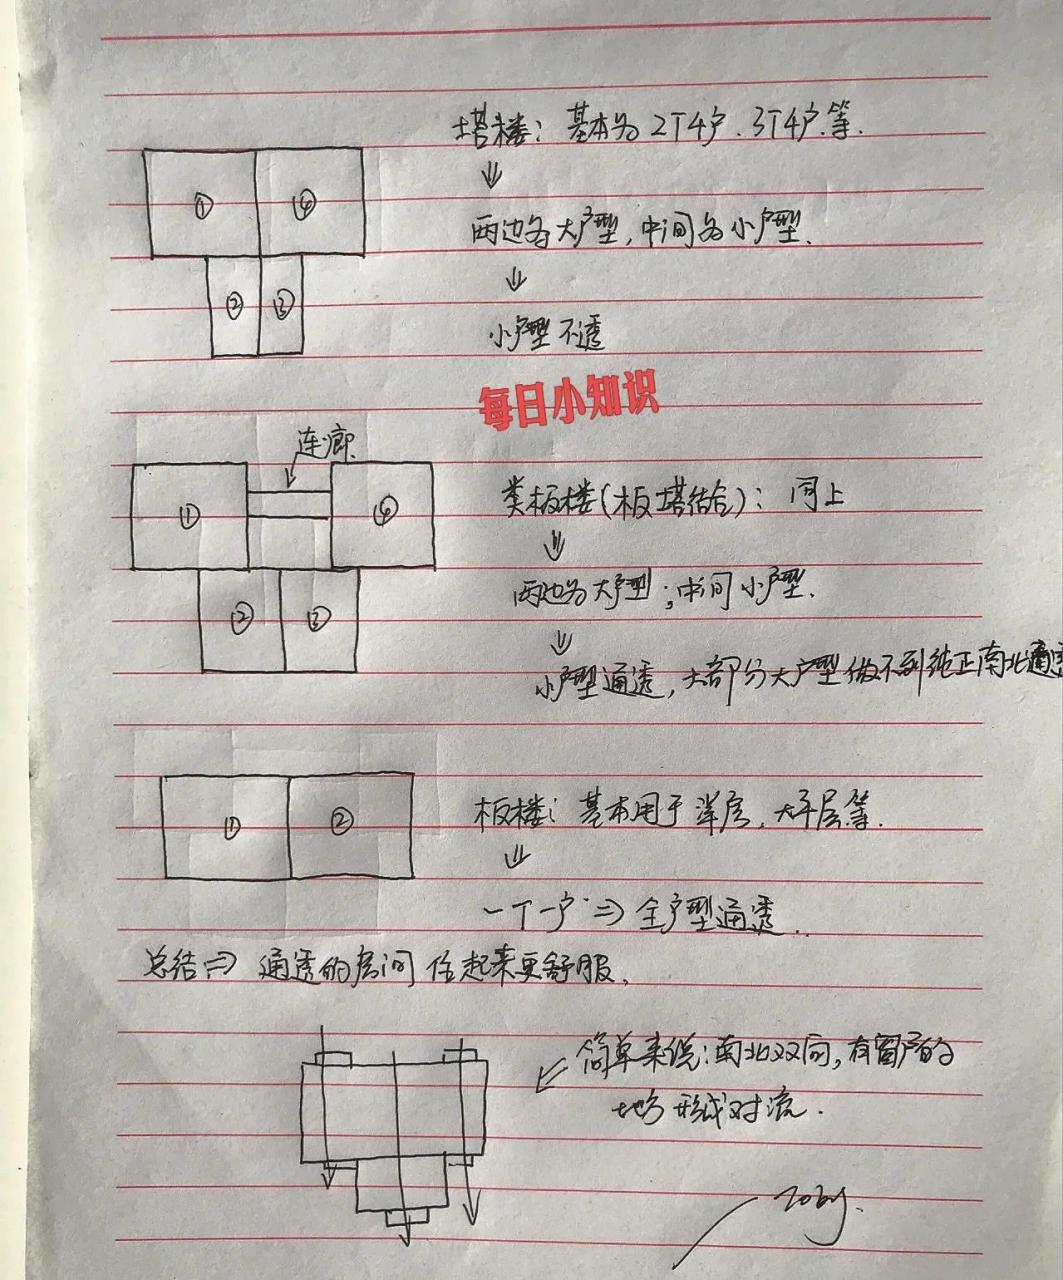 塔楼：基本为2T4户、3T4户等.
① ④
两边各大户型，中间各小户型.
② ③
小户型不透
每日小知识
连廊
① ④
类板楼(板塔结合)：同上
两边为大户型；中间小户型.
② ③
小户型通透，大部分大户型做不到纯正南北通透
板楼：基本用于洋房，大平层等.
① ②
一T一户⇒全户型通透..
总结⇒通透的房间住起来更舒服.
简单来说：南北双向，有窗户的
地方形成对流.
Toby.